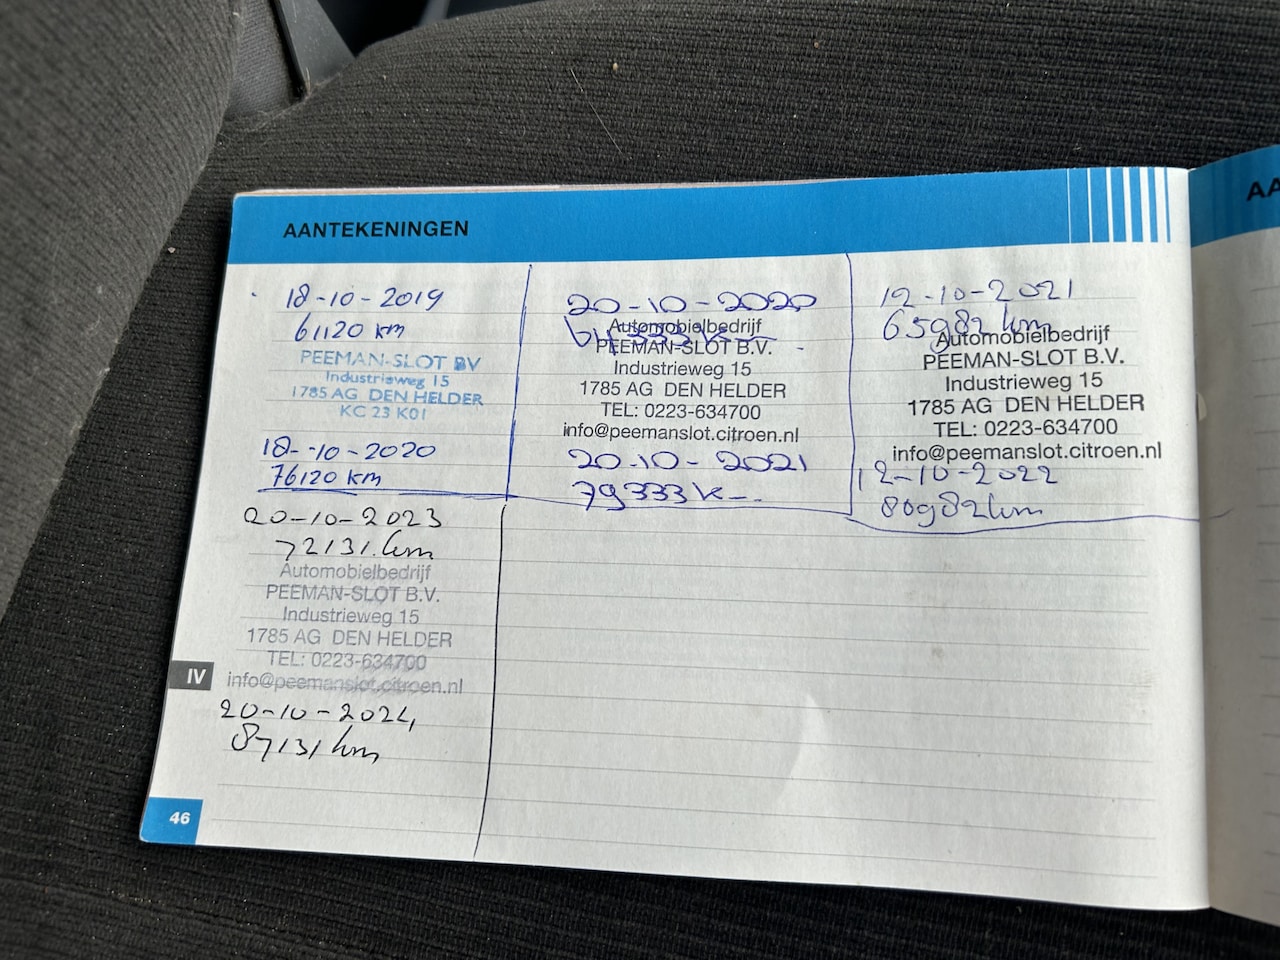 AANTEKENINGEN
18-10-2019
61120 km
PEEMAN-SLOT BV
Industrieweg 15
1785 AG DEN HELDER
KC 23 K01
18-10-2020
76120 km
20-10-2020
64333 k
Automobielbedrijf
PEEMAN-SLOT B.V.
Industrieweg 15
1785 AG DEN HELDER
TEL: 0223-634700
info@peemanslot.citroen.nl
20-10-2021
79333 k
12-10-2021
65982 km
Automobielbedrijf
PEEMAN-SLOT B.V.
Industrieweg 15
1785 AG DEN HELDER
TEL: 0223-634700
info@peemanslot.citroen.nl
12-10-2022
80982 km
20-10-2023
72131 km
Automobielbedrijf
PEEMAN-SLOT B.V.
Industrieweg 15
1785 AG DEN HELDER
TEL: 0223-634700
info@peemanslot.citroen.nl
20-10-2024
87131 km
IV
46
AA